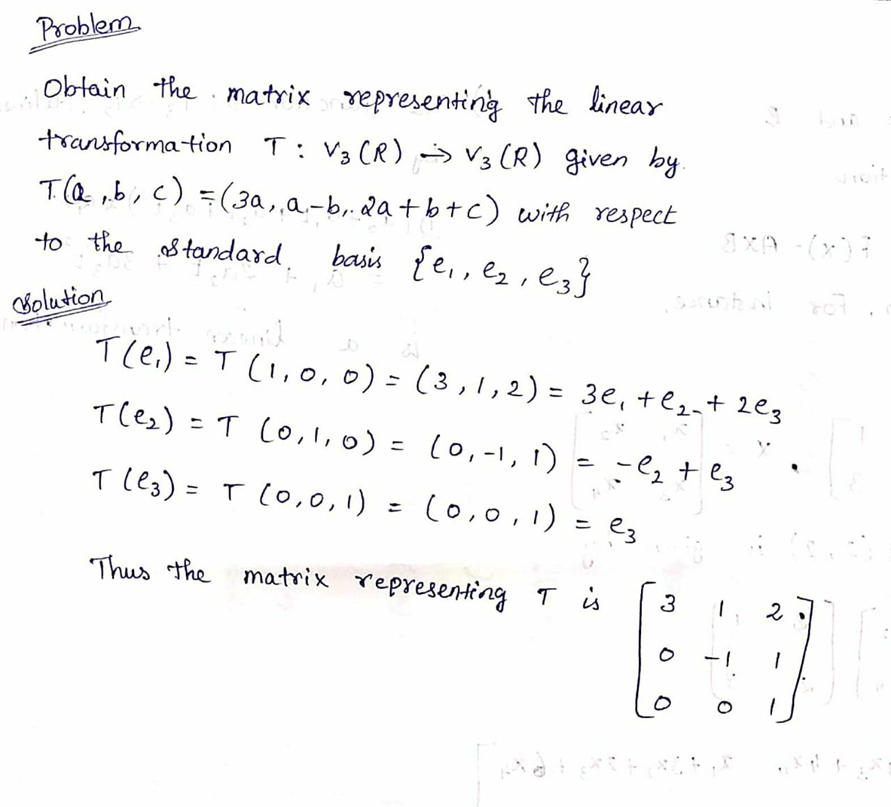 Problem
Obtain the matrix representing the linear
transformation T : V₃(R) → V₃(R) given by.
T(a, b, c) = (3a, a-b, 2a+b+c) with respect
to the standard basis {e₁, e₂, e₃}
Solution
T(e₁) = T(1, 0, 0) = (3, 1, 2) = 3e₁ + e₂ + 2e₃
T(e₂) = T (0, 1, 0) = (0, -1, 1) = -e₂ + e₃
T(e₃) = T (0, 0, 1) = (0, 0, 1) = e₃
Thus the matrix representing T is
3 1 2
0 -1 1
0 0 1